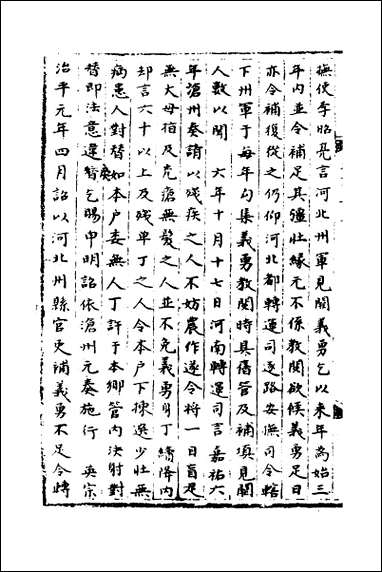 撫使李昭亮言河北州軍見闕義勇乞以来年為始三
年内並令補足其彊壮縁元不係教閱欲候義勇足日
亦令補復從之仍仰河北都轉運司逐路安撫司令轄
下州軍于每年勾集義勇教閱時具舊管及補項見闕
人數以聞　六年十月十七日河南轉運司言嘉祐六
年滄州奏請以残疾之人不妨農作遂令將一目盲足
無大母指及禿瘡無髮之人並不免義勇身丁續降内
却言六十以上及残单丁之人令本户下揀選少壮無
病患人對替如本户委無人丁許于本鄉管内決射對
替即法意違奏乞賜申明詔依滄州元奏施行　英宗
治平元年四月詔以河北州縣官吏補義勇不足令轉